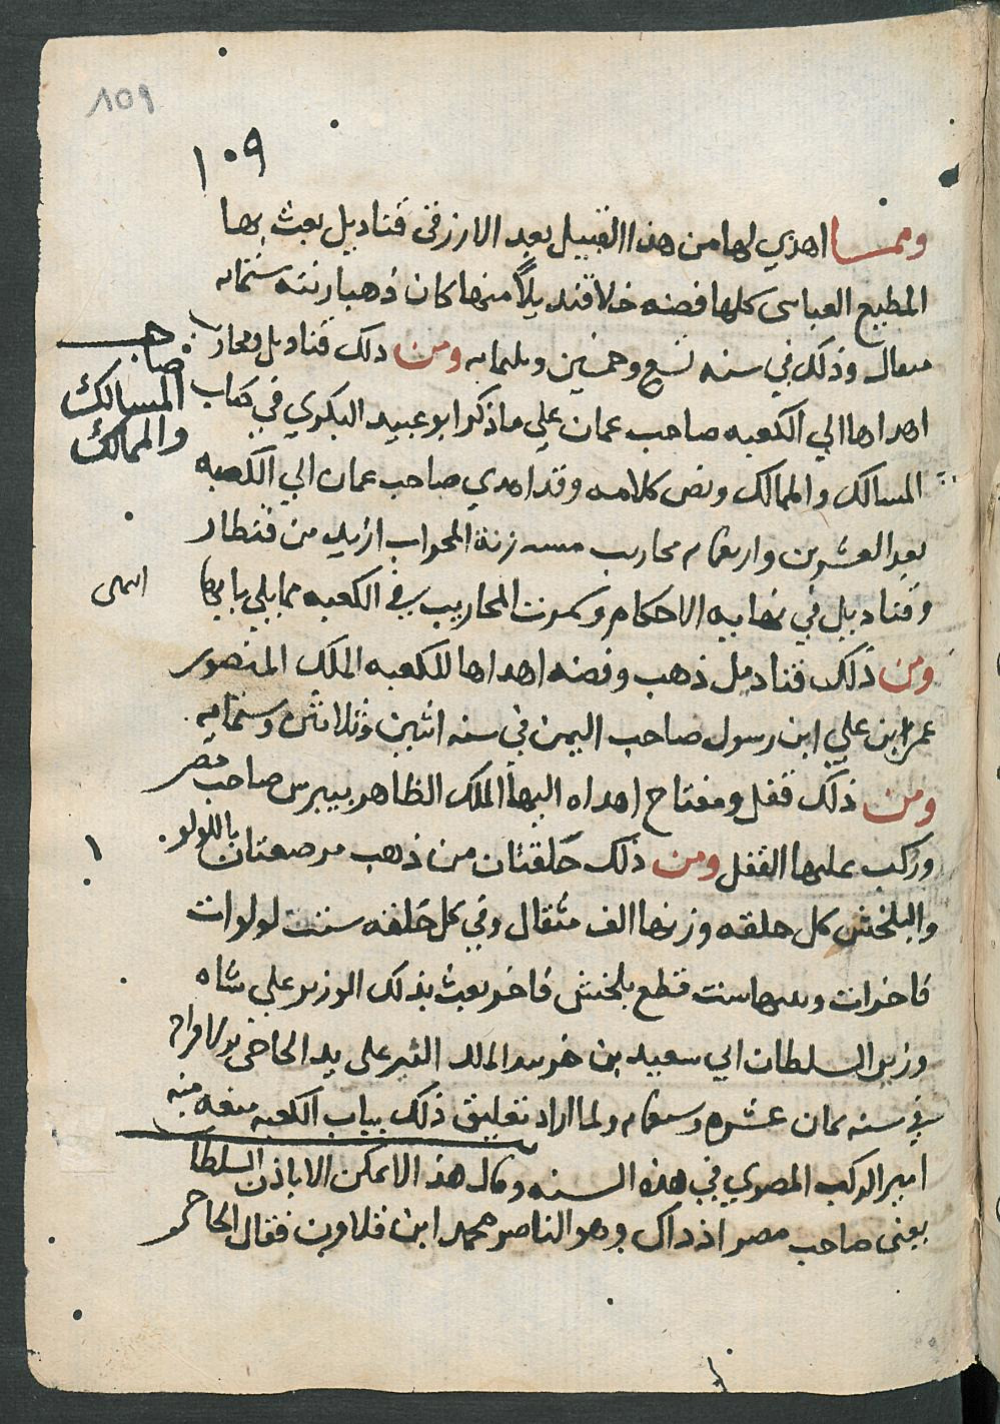 ١٠٩
١٠٩
ومما اهدي لها من هذا القبيل بعد الازرقى قناديل بعث بها
المطيع العباسى كلها فضه خلا قنديلاً منها كان ذهبا زنته ستمايه
مثقال وذلك في سنه تسع وخمسين وثلثمايه ومن ذلك قناديل ومحاريب
اهداها الي الكعبه صاحب عمان علي ما ذكر ابو عبيد البكري في كتاب
صاحب
المسالك
والممالك
المسالك والممالك ونص كلامه وقد اهدي صاحب عمان الي الكعبه
بعد العشرين واربعمايه محاريب زنة المحراب ازيد من قنطار
وقناديل في نهايه الاحكام وسمرت المحاريب في الكعبه مما يلي بابها
انتهى
ومن ذلك قناديل ذهب وفضه اهداها للكعبه الملك المنصور
عمر ابن علي ابن رسول صاحب اليمن في سنه اثنين وثلاثين وستمايه
ومن ذلك قفل ومفتاح اهداه اليها الملك الظاهر بيبرس صاحب مصر
وركب عليها القفل ومن ذلك حَلقتان من ذهب مرصعتان باللولو
والبلخش كل حلقه وزنها الف مثقال وفي كل حَلقه ستت لولوات
فاخرات وبينها ست قطع بلخش فاخر بعث بذلك الوزير علي شاه
وزير السلطان ابي سعيد بن الملك التتر على يد الحاجي
في سنه ثمان عشره وسبعمايه ولما اراد تعليق ذلك بباب الكعبه منعه منه
امير الركب المصري في هذه السنه وقال هذا لا يمكن الا باذن السلطان
يعنى صاحب مصر اذ ذاك وهو الناصر محمد ابن قلاون فقال الحاجى